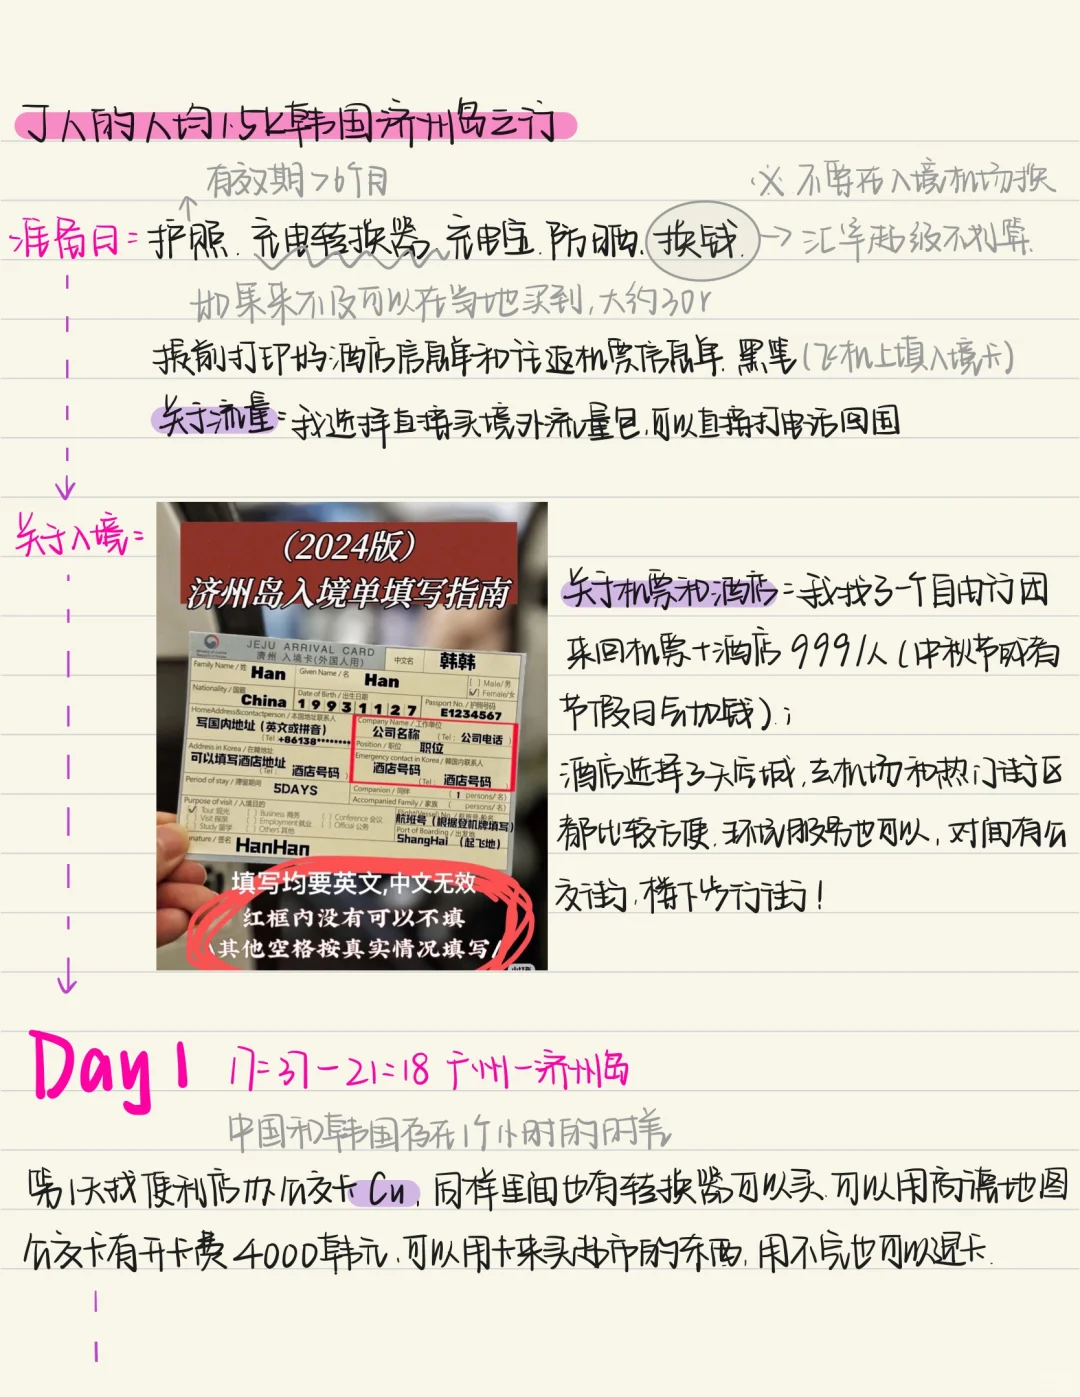 丁人的人均1.5k韩国济州岛之行
有效期>6个月
※ 不要在入境机场换
准备日: 护照、充电转换器、充电宝、防晒、换钱 → 汇率超级不划算
如果来不及可以在当地买到,大约30r
提前打印好酒店信息单和往返机票信息单、黑笔(飞机上填入境卡)
关于流量:我选择直接买境外流量包,可以直接打电话回国
关于入境:
(2024版)
济州岛入境单填写指南
JEJU ARRIVAL CARD
濟州 入境卡(外国人用)
中文名 韩韩
Family Name / 姓 Han
Given Name / 名 Han
[ ] Male/男
[✓] Female/女
Nationality / 国籍 China
Date of Birth / 出生日期 19931127
Passport No. / 护照号码 E1234567
HomeAddress&contactperson / 本国地址联系人
写国内地址(英文或拼音)
(Tel : +86138********)
Company Name / 工作单位
公司名称 (Tel : 公司电话)
Position / 职位 职位
Address in Korea / 在韩地址
可以填写酒店地址
(Tel : 酒店号码)
Emergency contact in Korea / 韩国内联系人
酒店号码 (Tel : 酒店号码)
Period of stay / 滞留期间 5DAYS
Companion / 同伴 ( 1 persons/名)
Accompanied Family / 家族 ( persons/名)
Purpose of visit / 入境目的
Tour 观光
Visit 探亲
Study 留学
Business 商务
Employment 就业
Others 其他
Conference 会议
Official 公务
航班号(根据登机牌填写)
Port of Boarding / 出发地
ShangHai (起飞地)
/ 签名 HanHan
填写均要英文,中文无效
红框内没有可以不填
\其他空格按真实情况填写/
关于机票和酒店:我找了一个自由行团
来回机票+酒店 999/人(中秋节或者
节假日会加钱);
酒店选择了大店城,去机场和热门街区
都比较方便,环境服务也可以,对间有公
交街,楼下步行街!
Day 1 17:37-21:18 广州-济州岛
中国和韩国存在1个小时的时差
第1天找便利店办公交卡 Cu,同样里间也有转换器可以买、可以用高德地图
公交卡有开卡费4000韩元,可以用卡来买超市的东西,用不完也可以退卡.